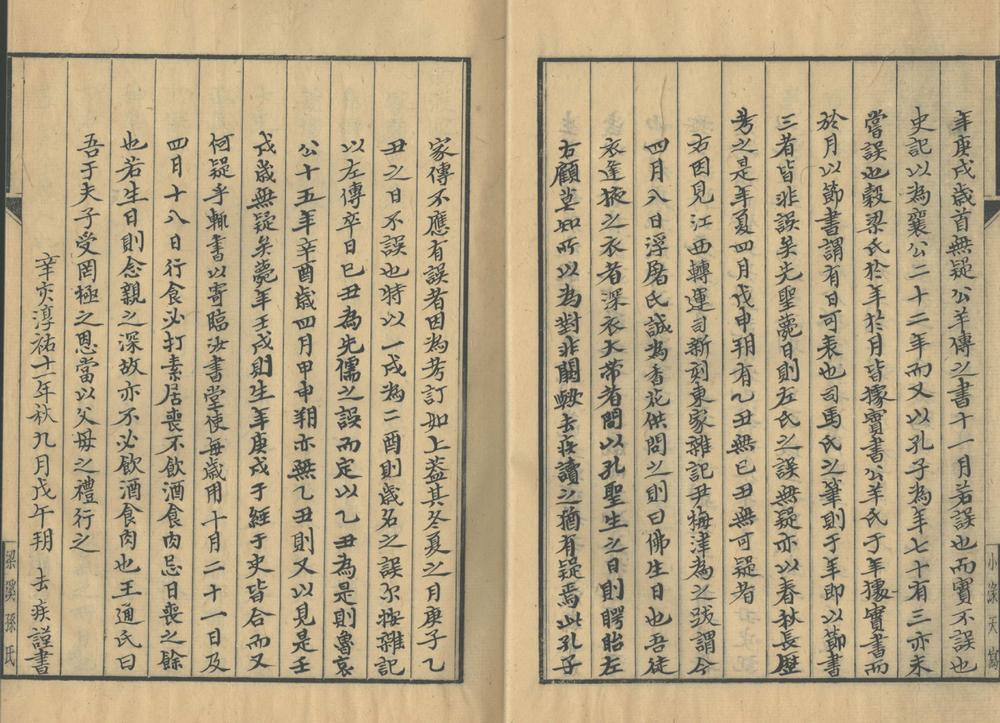 年庚戌歲首無疑公羊傳之書十一月若誤也而實不誤也
史記以為襄公二十二年而又以孔子為年七十有三亦未
嘗誤也穀梁氏於年於月皆據實書公羊氏于年據實書而
於月以節書謂有日可表也司馬氏之筆則于年即以節書
三者皆非誤矣先聖薨日則左氏之誤無疑亦以春秋長歷
考之是年夏四月戊申朔有乙丑無已丑無可疑者
右因見江西轉運司新刻東家雜記尹梅津為之跋謂今
四月八日浮屠氏誠為香花供問之則曰佛生日也吾徒
衣逢掖之衣者深衣大帶者問以孔聖生之日則腭眙左
右顧莫知所以為對非闕歟去疾讀之猶有疑焉此孔子
家傳不應有誤者因為考訂如上蓋其冬夏之月庚子乙
丑之日不誤也特以一戌為二酉則歲名之誤尔按雜記
以左傳卒日已丑為先儒之誤而定以乙丑為是則魯哀
公十五年辛酉歲四月甲申朔亦無乙丑則又以見是壬
戌歲無疑矣薨年壬戌則生年庚戌于經于史皆合而又
何疑乎輒書以寄臨汝書堂使每歲用十月二十一日及
四月十八日行食必打素居喪不飲酒食肉忌日喪之餘
也若生日則念親之深故亦不必飲酒食肉也王通氏曰
吾于夫子受罔極之恩當以父母之禮行之
辛亥淳祐十一年秋九月戊午朔 去疾謹書
小淥天寫
梁溪孫氏